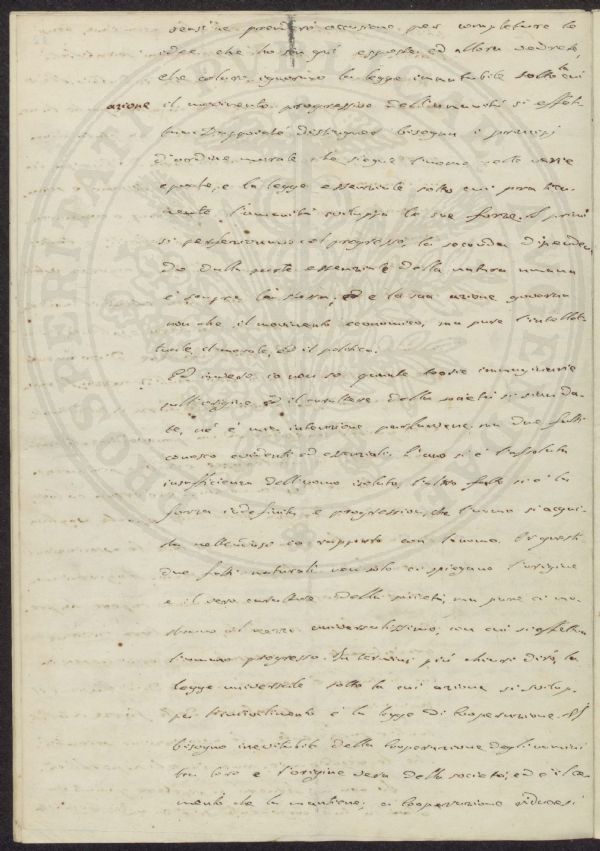 prenderò occasione per completare le
idee che ho fin quì esposte, ed allora vedrete,
che coloro ignorino la legge immutabile sotto la cui
azione il movimento progressivo dell'umanità si effet-
distinguer bisogna i principj
d'ordine morale che siegue l'uomo nelle varie
epoche, e la legge essenziale sotto cui
l'umanità sviluppa le sue forze. I primi
si perfezionano col progresso, la seconda dipenden-
do dalla parte essenziale della natura umana
è sempre la stessa, ed è la sua azione governa
non che il movimento economico, ma pure l'intellet-
tuale, il morale, ed il politico.
Ed invero io non so quante teorie immaginarie
sull'origine ed il carattere della società si sian da-
te, nè è mia intenzione parlarvene. ma due fatti
conosco evidenti ed essenziali. L'uno si è l'assoluta
insufficienza dell'uomo isolato, l'altro fatto si è la
forza indefinita e progressiva, che l'uomo si acqui-
sta nell' rapporto con l'uomo. Or questi
due fatti naturali non solo ci spiegano l'origine
e il vero carattere della società, ma pure ci mo-
strano il mezzo universalissimo, con cui si effettua
l'umano progresso. In termini più chiari dirò, la
legge universale sotto la cui azione si svilup-
pa l'incivilimento è la legge di Cooperazione. Il
bisogno inevitabile della Cooperazione degli uomini
tra loro è l'origine vera della società, ed è il ce-
mento che la mantiene; a cooperazione riducesi